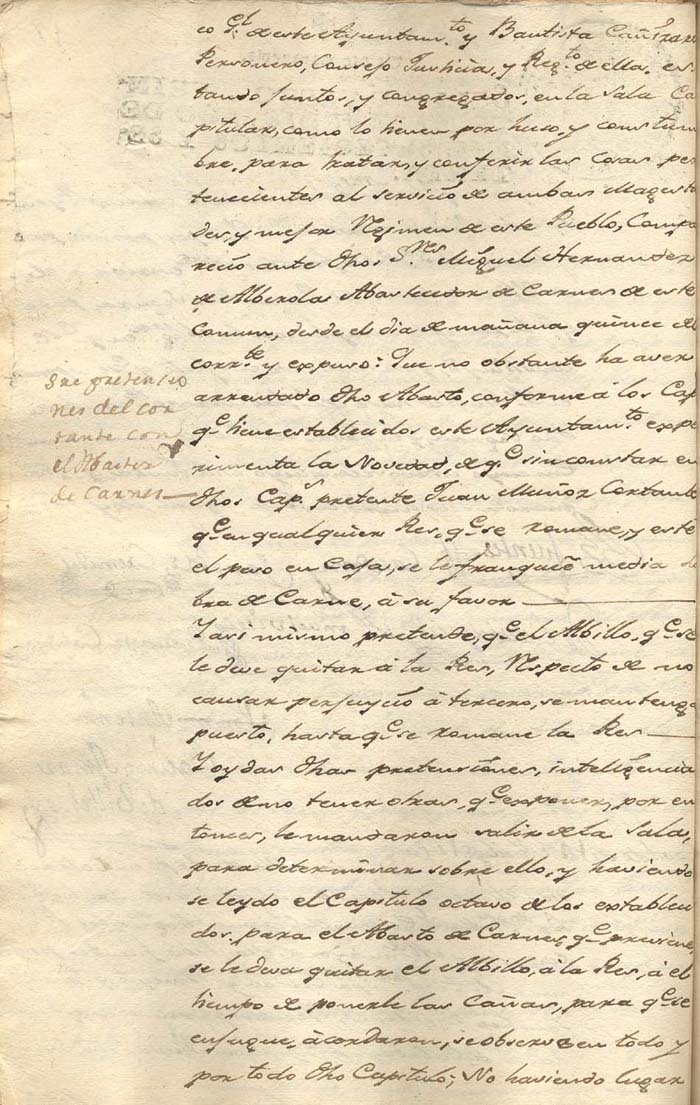 co Gl. de este Ayuntamto. y Bautista Cañizares
Personero, Consejo Justicia, y Regto. de ella. es
tando juntos, y congregados, en la Sala Ca
pitular, como lo tienen por huso, y constum
bre, para tratar, y conferir las cosas per
tenecientes al servicio de ambas Magesta
des, y mejor Regimen de este Pueblo, Compa
reció ante dhos. Sres. Miguel Hernandez
de Alberola Abastecedor de Carnes de este
Comun, desde el dia de mañana quince del
corrte. y expuso: Que no obstante ha aver
arrendado dho Abasto, conforme á los Cap
qe. tiene establecidos este Ayuntamto. expe
rimenta la Novedad, de qe. sin constar en
dhos Caps. pretente Juan Muñoz Cortante
qe. en qualquier Res, qe. se romane, y este
el peso en Caja, se le franquiè media li
bra de Carne, à su favor
Y asi mismo pretende, qe. el Albillo, qe. se
le deve quitar à la Res, Respecto de no
causar perjuycio à tercero, se mantenga
puesto, hasta qe. se romane la Res
Y oydas dhas pretensiones, inteligencia
dos de no tener otras, qe. exponer, por en
tonces, le mandaron salir de la Sala,
para determinar sobre ello, y haviendo
se leydo el Capitulo octavo de los establecí
dos, para el Abasto de Carnes, qe. previene,
se le deva quitar el Albillo, à la Res, à el
tiempo de ponerle las Cañas, para qe. se
enjugue, àcordaron, se observe en todo y
por todo dho Capitulo; No haviendo lugar
Sre pretensio
nes del cor
tante con
el Abastez
de Carnes